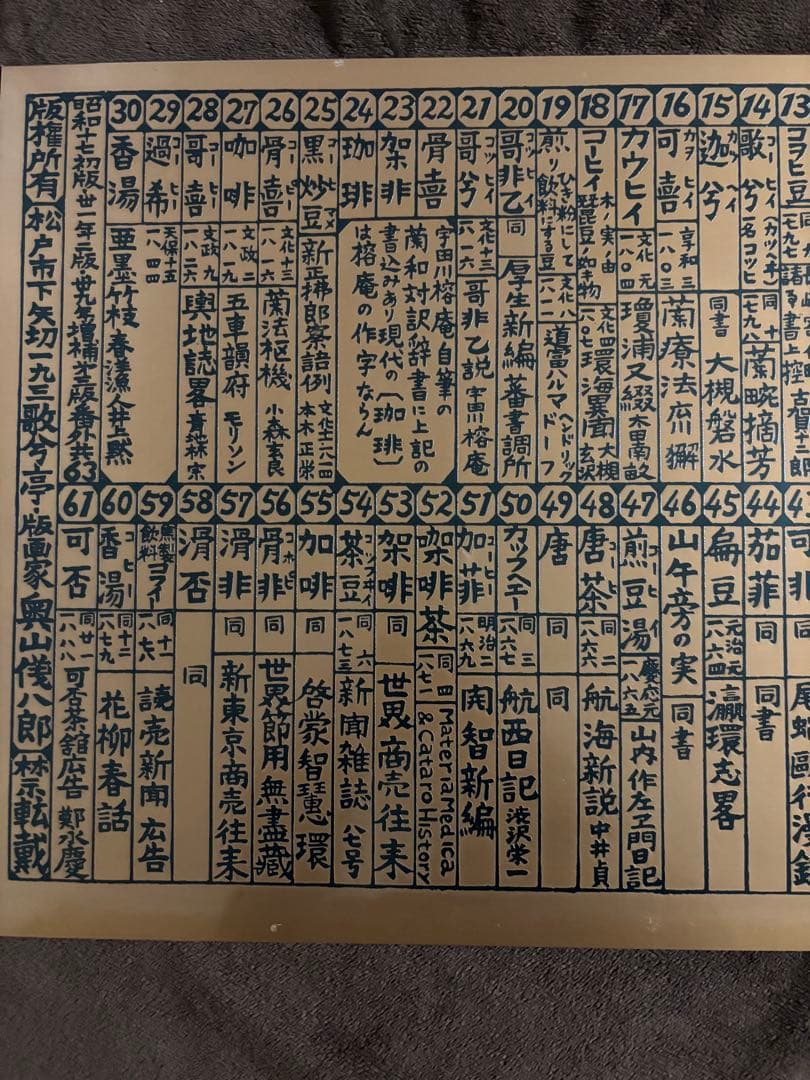 コラヒ豆
14 歌兮 コーヒイ 一名コッヒ (カツヘヰ) 同十 一七九八 蘭畹摘芳
15 迦兮 カツヘイ 同書 大槻磐水
16 可喜 カヲヒイ 享和三 蘭療法 広川獬
17 カウヒイ 文化元 一八〇四 瓊浦又綴 大田南畝
18 コーヒイ 木ノ実ノ由 琵琶豆ノ如キ物 文化四 一八〇七 環海異聞 大槻玄沢
19 煎り飲料にする豆 ひき粉にして 文化八 一八一一 道富ハルマ ヘンドリックドーフ
20 哥非乙 コッヒイ 同 厚生新編 蕃書調所
21 哥兮 コッヒイ 文化十三 一八一六 哥非乙説 宇田川榕庵
22 骨喜
23 架非
24 珈琲
宇田川榕庵自筆の
蘭和対訳辞書に上記の
書込みあり現代の〔珈琲〕
は榕庵の作字ならん
25 黒炒豆 コーヒーマメ 新正拂郎察語例 文化十二 一八一四 本木正栄
26 骨喜 コーヒー 文化十三 一八一六 蘭法枢機 小森玄良
27 咖啡 文政二 一八一九 五車韻府 モリソン
28 哥喜 コーヒー 文政九 一八二六 輿地誌畧 青地林宗
29 過希 コーヒー 天保十五 一八四四
30 香湯 亜墨竹枝 春濤漁人井上黙
昭和十七初版・卅一年二版・卅九年増補才三版番外共63
44 茄菲 同 同書
45 扁豆 元治元 一八六四 瀛環志畧
46 山午旁の実 同書
47 煎豆湯 コーヒイ 慶応元 一八六五 山内作左ヱ門日記
48 唐茶 コーヒー 同二 一八六六 航海新説 中井貞
49 唐 同 同
50 カッフヘエー 同三 一八六七 航西日記 渋沢栄一
51 加菲 コーヒー 明治二 一八六九 開智新編
52 咖啡茶 同四 一八七一 Materia Medica & Cataro History
53 架啡 同 世界商売往来
54 茶豆 同六 一八七三 新聞雑誌 八七号
55 加啡 同 啓蒙智慧環
56 骨非 コホヒ 同 世界節用無盡蔵
57 滑非 同 新東京商売往来
58 滑否 同
59 馬製飲料 コライ 同十一 一八七八 読売新聞広告
60 香湯 コヒー 同十二 一八七九 花柳春話
61 可否 同廿一 一八八八 可否茶館広告 鄭永慶
版權所有 松戸市下矢切一九三 歌兮亭・版画家 奥山儀八郎 禁転載